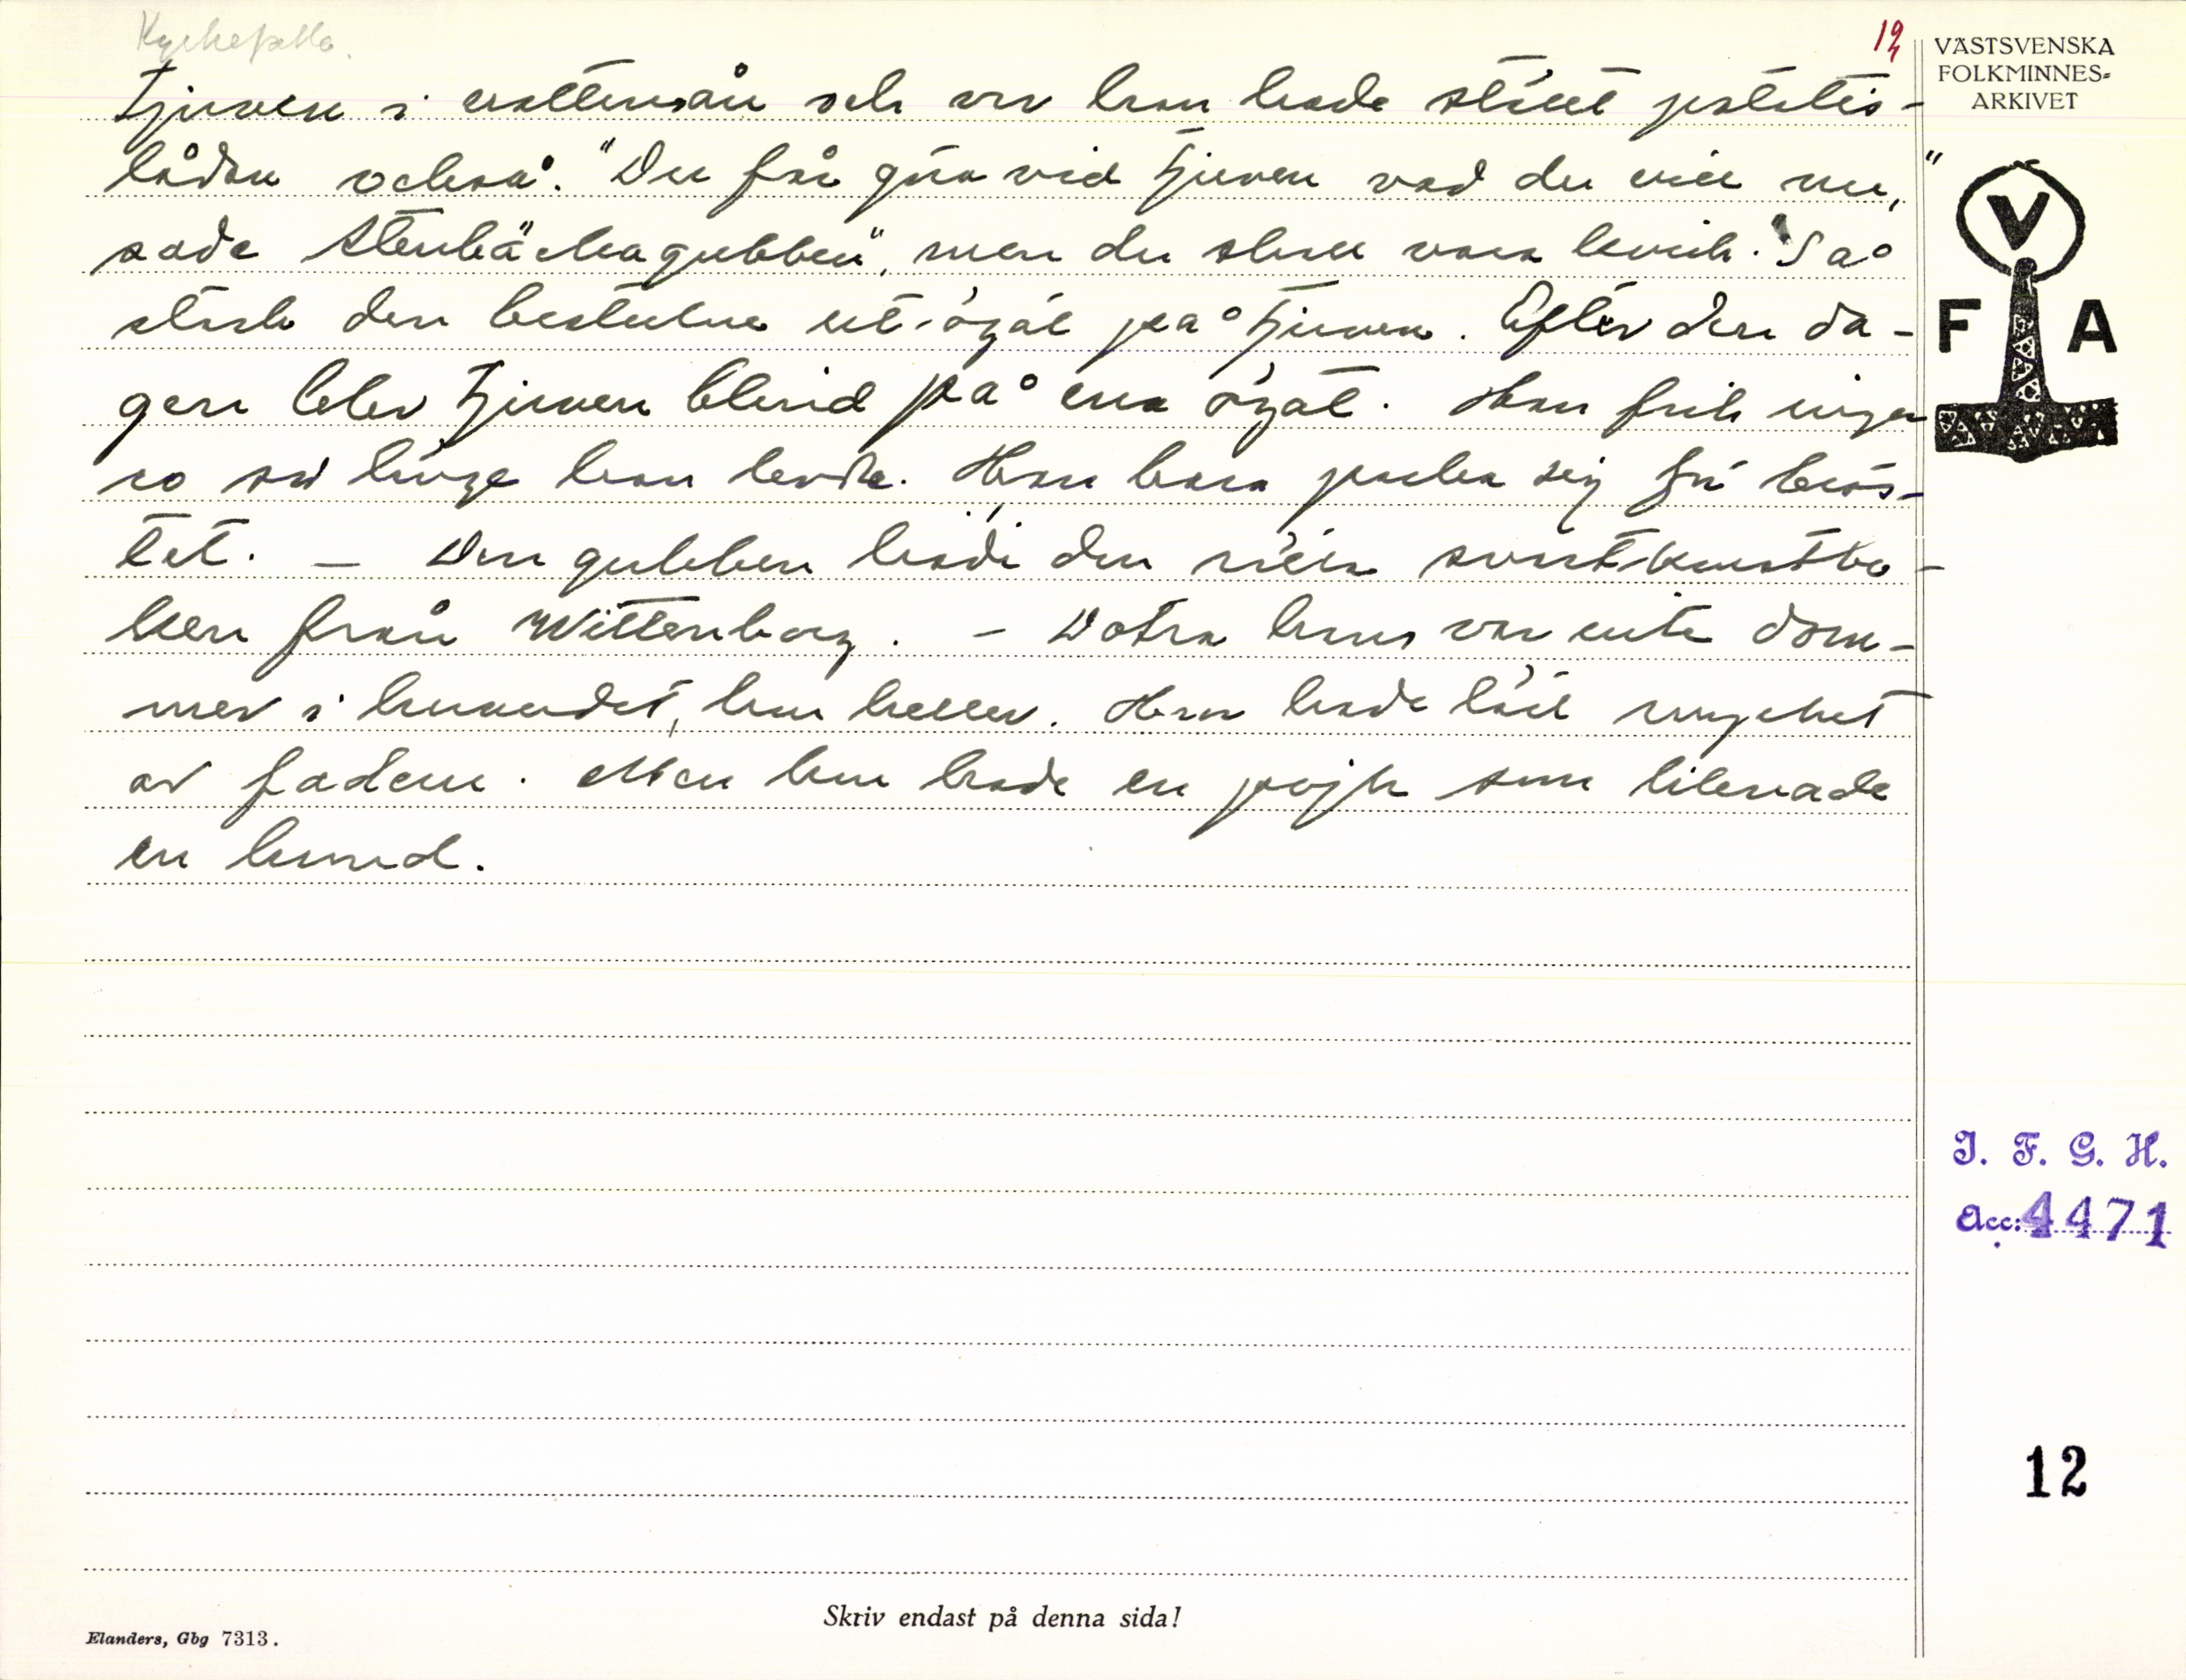 Kyrkefalla.
12
tjuven i vattensån och var han hade ställt potatis-
lådan också. "Du får göra vid tjuven vad du vill nu,"
sade Stenbäckagubben, "men du skall vara kvick." Så
stack den bestulne ut ögat på tjuven. Efter den da-
gen blev tjuven blind på ena ögat. Han fick ingen
ro så länge han levde. Han bara packa sig från
tet. — Den gubben hade den rätta svartkonstbo-
ken från Wittenberg. — Dotra hans var inte dum-
mer i huvudet, hon heller. Hon hade lärt mycket
av fadern. Men hon hade en pojk som liknade
en hund.
VÄSTSVENSKA
FOLKMINNES-
ARKIVET
V
F A
I. F. G. H.
Acc: 4471
12
Skriv endast på denna sida!
Elanders, Gbg 7313.